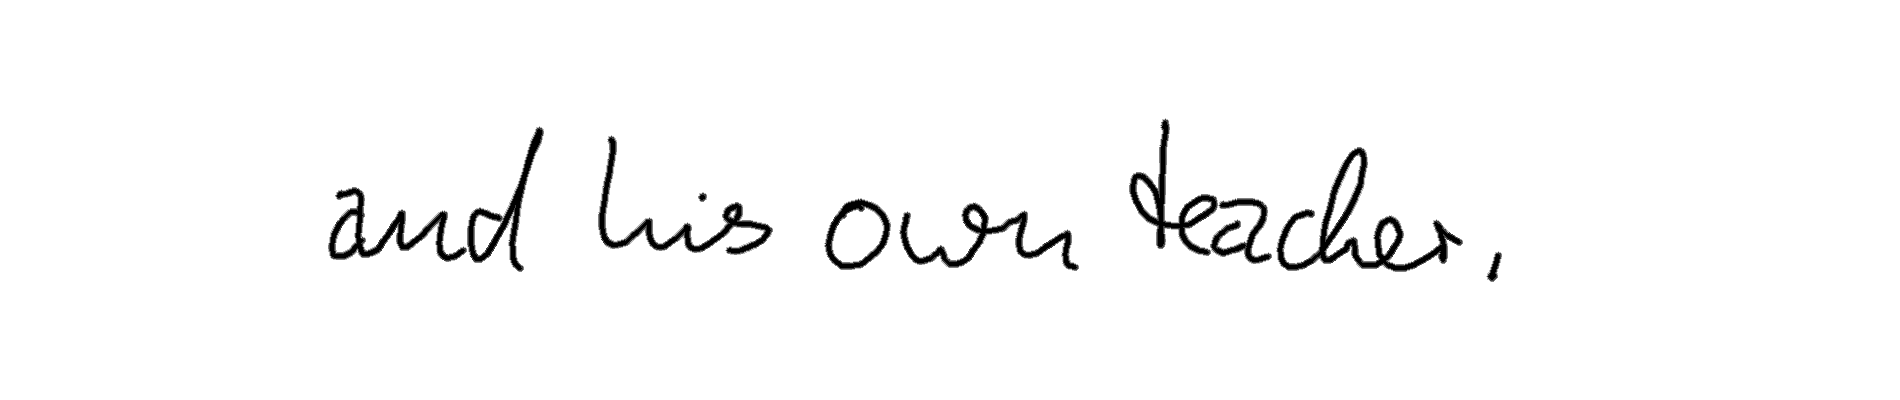 and his own teacher,